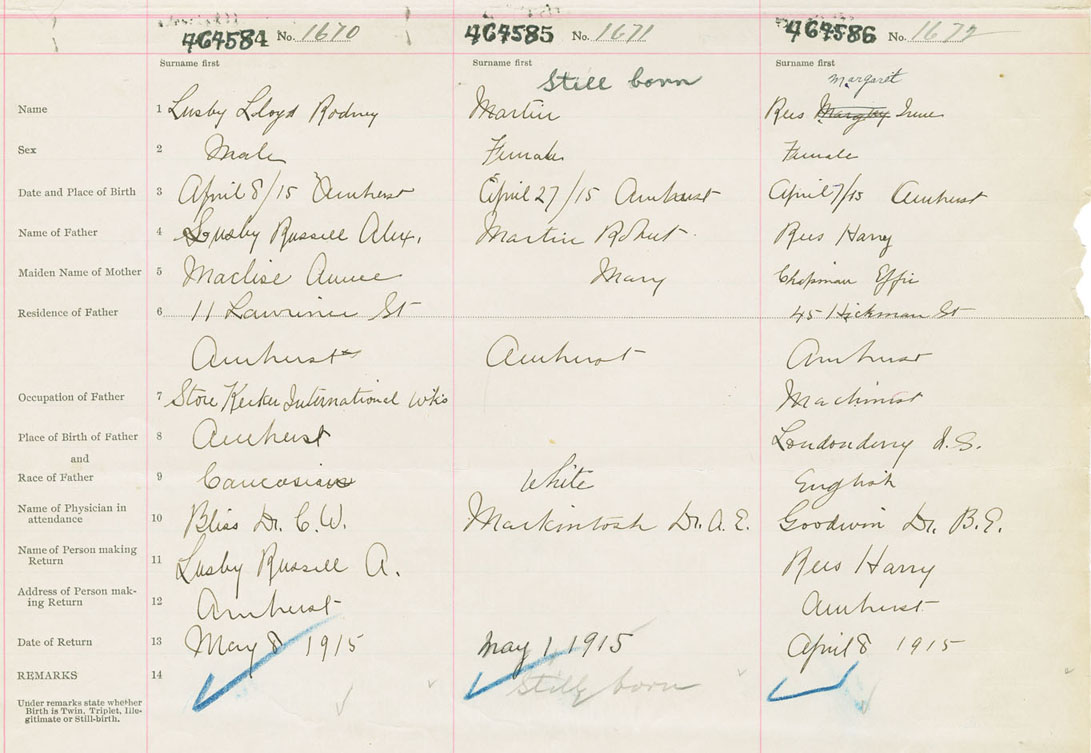 464584 No. 1670 464585 No. 1671 464586 No. 1672
Surname first Surname first Surname first
Still born Margaret
Name 1 Lusby Lloyd Rodney Martin Rees Irene
Sex 2 Male Female Female
Date and Place of Birth 3 April 8/15 Amherst April 27/15 Amherst April 7/15 Amherst
Name of Father 4 Lusby Russell Alex. Martin Robert Rees Harry
Maiden Name of Mother 5 Maclise Annie Mary Chapman Effie
Residence of Father 6 11 Lawrence St 45 Hickman St
Amherst Amherst Amherst
Occupation of Father 7 Store Keeker International Wks Machinist
Place of Birth of Father 8 Amherst Londonderry N.S.
and
Race of Father 9 Caucasian White English
Name of Physician in attendance 10 Bliss Dr. C.W. Mackintosh Dr. A.E. Goodwin Dr. B.E.
Name of Person making Return 11 Lusby Russell A. Rees Harry
Address of Person mak-ing Return 12 Amherst Amherst
Date of Return 13 May 8 1915 May 1 1915 April 8 1915
REMARKS 14 Still born
Under remarks state whether
Birth is Twin, Triplet, Ille-
gitimate or Still-birth.